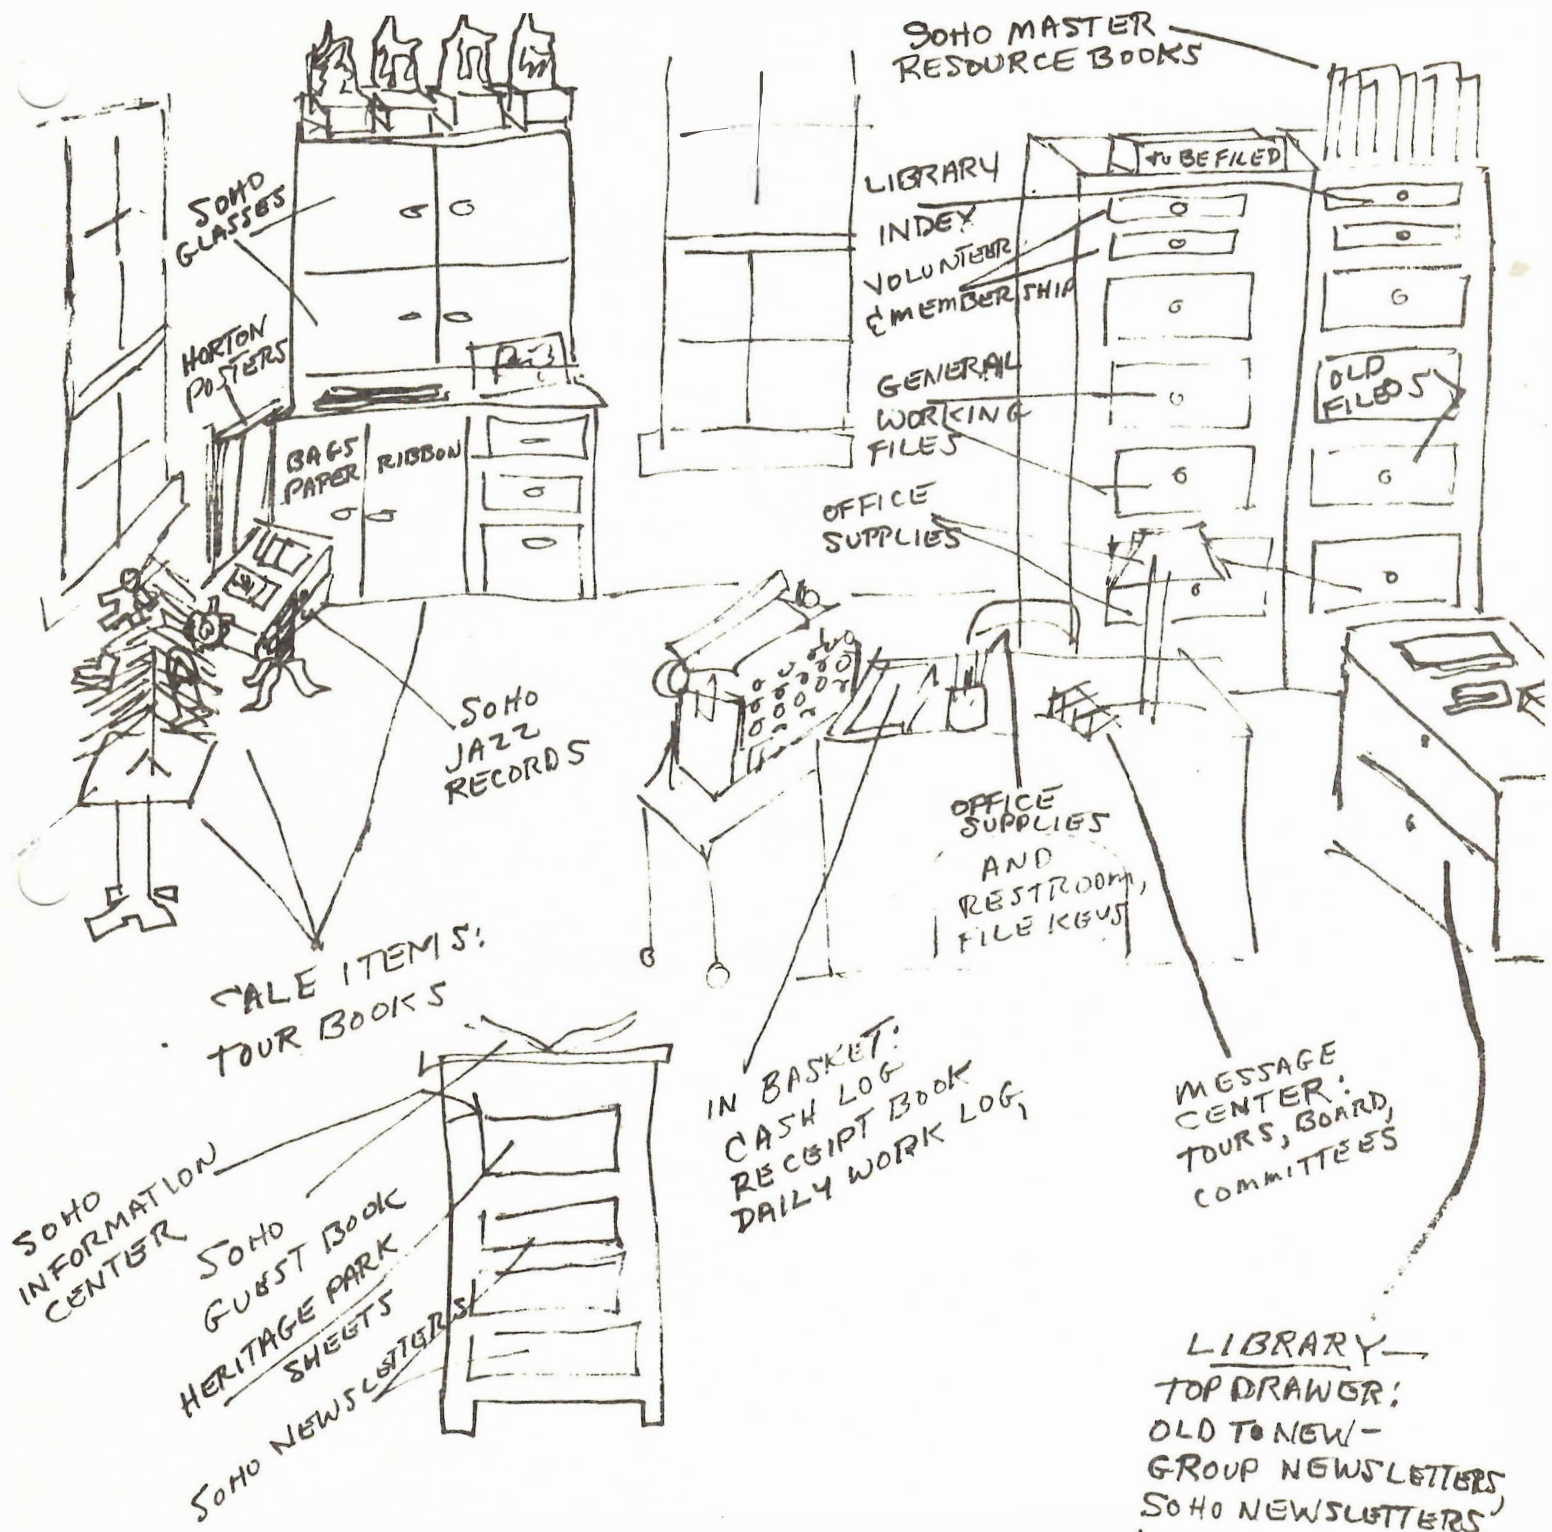 SOHO MASTER
RESOURCE BOOKS
TO BE FILED
LIBRARY
INDEX
VOLUNTEER
& MEMBERSHIP
GENERAL
WORKING
FILES
OLD
FILES
OFFICE
SUPPLIES
SOHO
GLASSES
HORTON
POSTERS
BAGS
PAPER
RIBBON
SOHO
JAZZ
RECORDS
OFFICE
SUPPLIES
AND
RESTROOM,
FILE KEYS
SALE ITEMS:
TOUR BOOKS
IN BASKET:
CASH LOG
RECEIPT BOOK
DAILY WORK LOG,
MESSAGE
CENTER:
TOURS, BOARD,
COMMITTEES
SOHO
INFORMATION
CENTER
SOHO
GUEST BOOK
HERITAGE PARK
SHEETS
SOHO NEWSLETTERS
LIBRARY—
TOP DRAWER:
OLD TO NEW-
GROUP NEWSLETTERS,
SOHO NEWSLETTERS